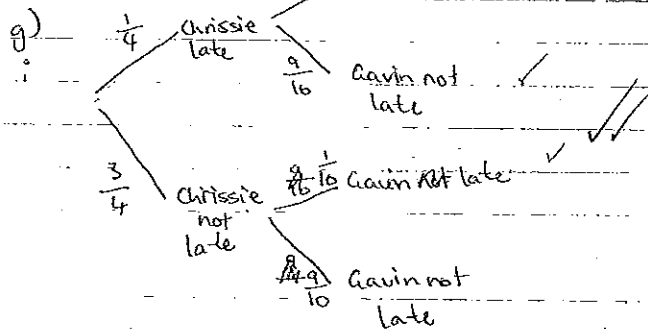 g)
i
1/4
Chrissie
late
9/10
Gavin not
late
3/4
Chrissie
not
late
1/10
Gavin late
9/10
Gavin not
late